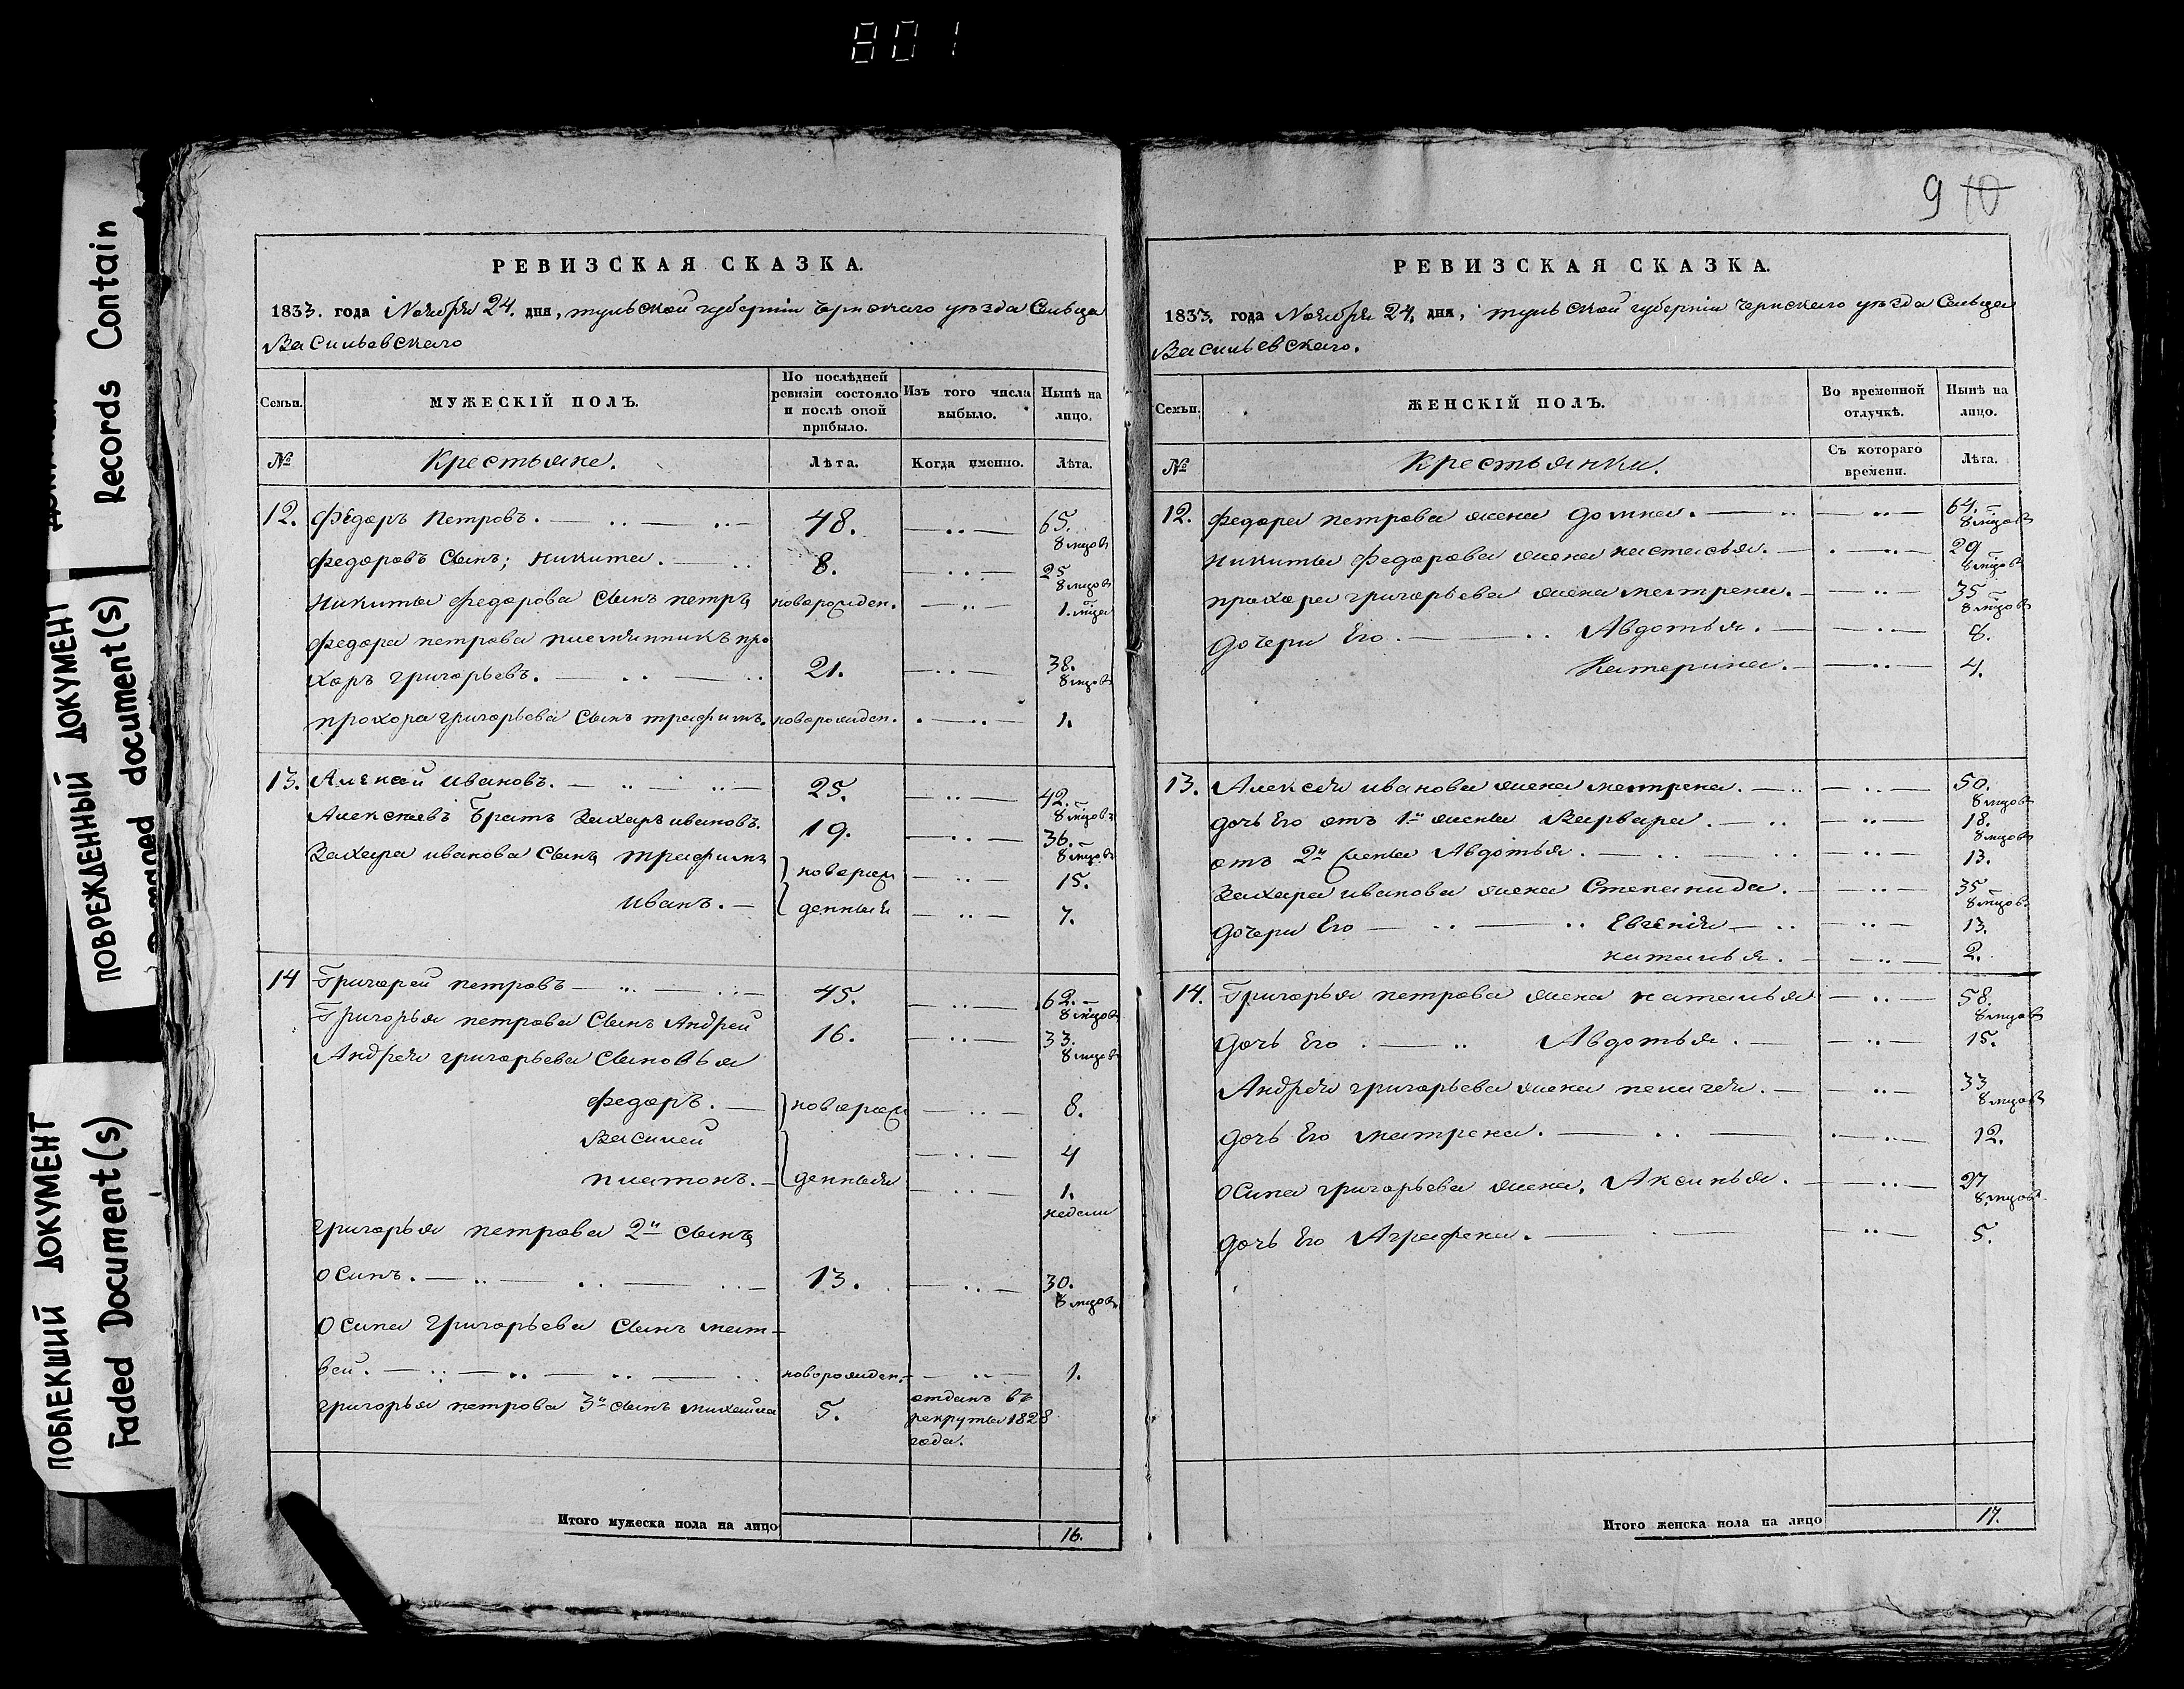 801
ДОКУМЕНТ
Records Contain
ПОВРЕЖДЕННЫЙ ДОКУМЕНТ
Damaged document(s)
ПОБЛЕКШИЙ ДОКУМЕНТ
Faded Document(s)
РЕВИЗСКАЯ СКАЗКА.
1833. года Ноября 24. дня, тульской губерніи Чернскаго уѣзда Сельца
Васильевскаго
Семьи. МУЖЕСКІЙ ПОЛЪ. По послѣдней ревизіи состояло и послѣ оной прибыло. Изъ того числа выбыло. Нынѣ на лицо.
№ Крестьяне. Лѣта. Когда именно. Лѣта.
12. Федоръ Петровъ. 48. 65. 8 мцовъ
Федоровъ Сынъ; Никита. 8. 25 8 мцовъ
Никиты Федорова Сынъ петръ новорожден. 1. мца
Федора петрова племянникъ про
хоръ григорьевъ. 21. 38. 8 мцовъ
прохора григорьева Сынъ трафимъ. новорожден. 1.
13. Алексѣй ивановъ. 25. 42. 8 мцовъ
Алексѣевъ Братъ Захаръ ивановъ. 19. 36. 8 мцовъ
Захара иванова Сынъ трафимъ новораж 15.
иванъ. денныя 7.
14 Григорей петровъ 45. 62. 8 мцовъ
Григорья петрова Сынъ Андрей 16. 33. 8 мцовъ
Андрея григорьева Сыновья
Федоръ. новораж 8.
Василей 4
платонъ. денныя 1. недели
григорья петрова 2й Сынъ
Осипъ. 13. 30. 8 мцовъ
Осипа Григорьева Сынъ мат-
вей. новорожден. 1.
григорья петрова 3й сынъ михайла 5. отданъ въ
рекруты 1828
года.
Итого мужеска пола на лицо 16.
9 10
РЕВИЗСКАЯ СКАЗКА.
1833. года Ноября 24. дня, тульской губерніи Чернскаго уѣзда Сельца
Васильевскаго.
Семьи. ЖЕНСКІЙ ПОЛЪ. Во временной отлучкѣ. Нынѣ на лицо.
№ Крестьянки. Съ котораго времени. Лѣта.
12. Федора петрова жена домна. 64. 8 мцовъ
Никиты Федорова жена настасья. 29 8 мцовъ
прохора григорьева жена матрена. 35 8 мцовъ
дочери Его. Авдотья. 8.
Катерина. 4.
13. Алексѣя иванова жена матрена. 50. 8 мцовъ
дочь Его отъ 1й жены Варвара. 18. 8 мцовъ
отъ 2й жены Авдотья. 13.
Захара иванова жена Степанида. 35 8 мцовъ
дочери Его Евгенія 13.
наталья. 2.
14. Григорья петрова жена наталья 58. 8 мцовъ
дочь Его. Авдотья. 15.
Андрея григорьева жена пелагея. 33 8 мцовъ
дочь Его матрена. 12.
Осипа григорьева жена, Аксинья. 27 8 мцовъ
дочь Его Аграфена. 5.
Итого женска пола на лицо 17.